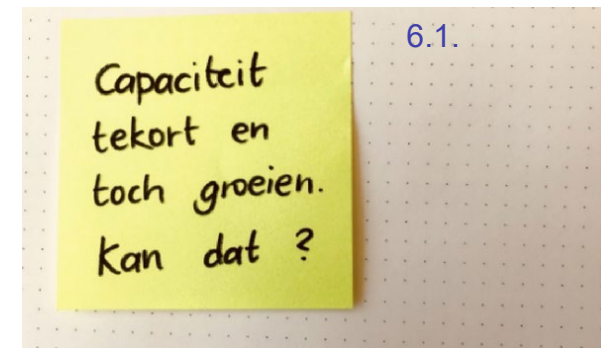 Capaciteit
tekort en
toch groeien.
Kan dat ?
6.1.